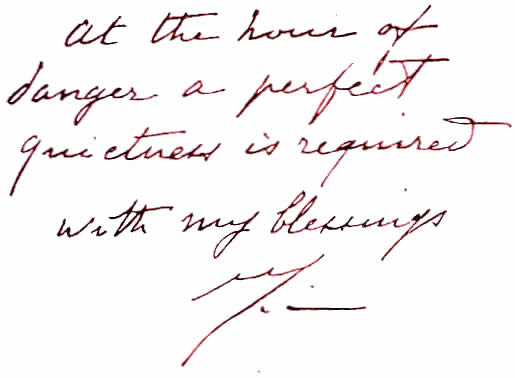 at the hour of
danger a perfect
quietness is required
with my blessings